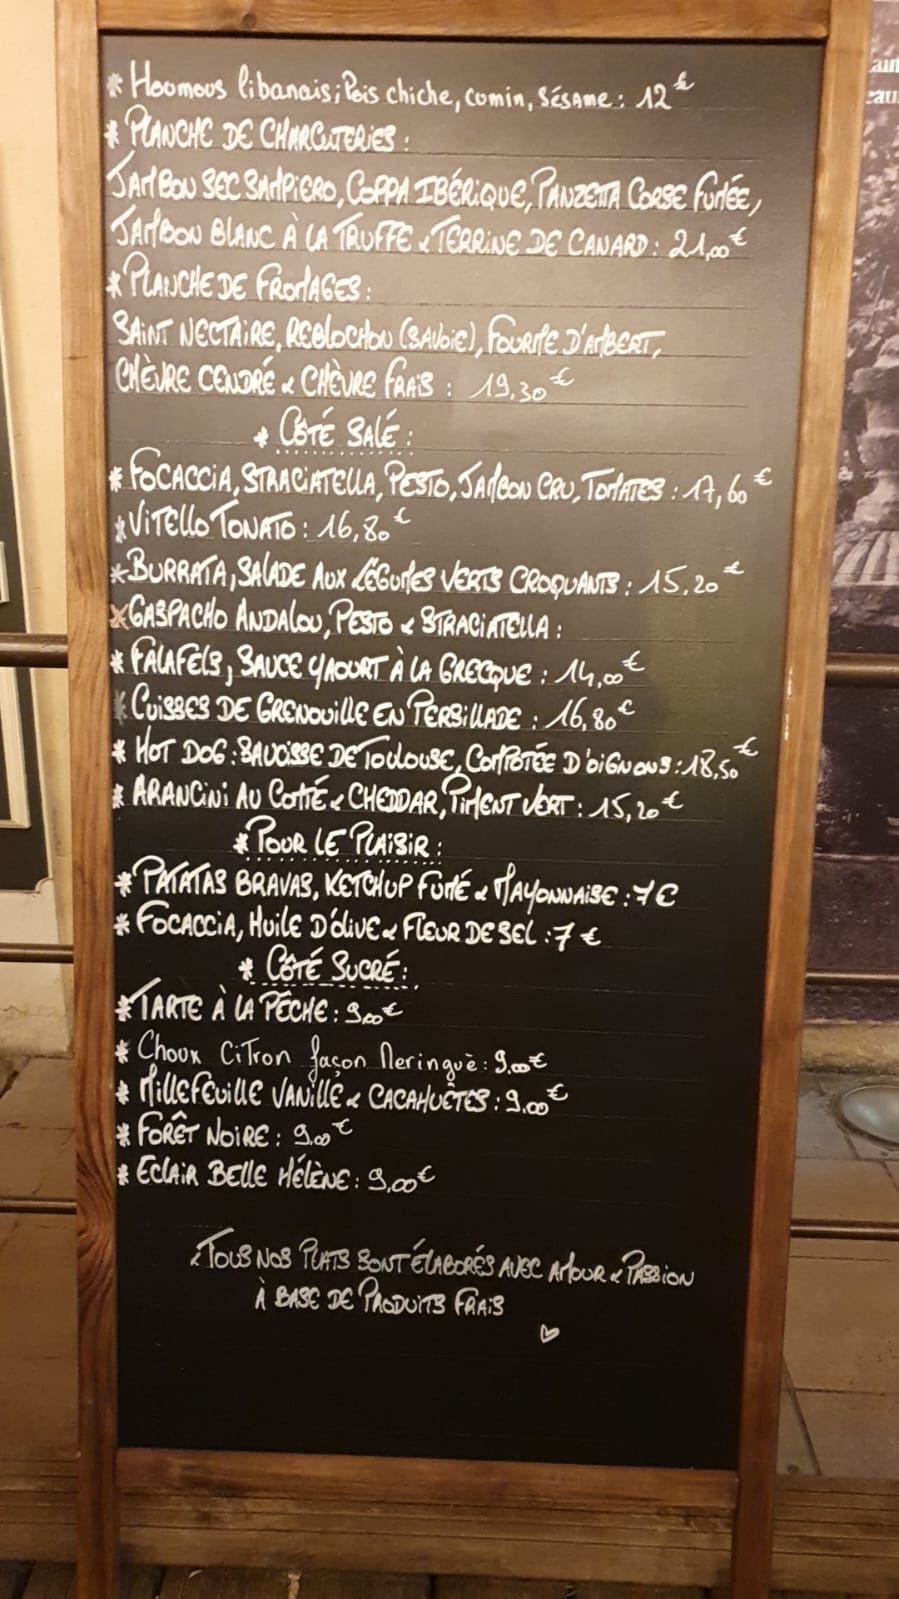 * Houmous libanais; Pois chiche, cumin, sésame : 12 €
* PLANCHE DE CHARCUTERIES :
JAMBON SEC SAMPIERO, COPPA IBÉRIQUE, PANZETTA CORSE FUMÉE,
JAMBON BLANC À LA TRUFFE & TERRINE DE CANARD : 21,00 €
* PLANCHE DE FROMAGES :
SAINT NECTAIRE, REBLOCHON (SAVOIE), FOURME D'AMBERT,
CHÈVRE CENDRÉ & CHÈVRE FRAIS : 19.30 €
* CÔTÉ SALÉ :
* FOCACCIA, STRACIATELLA, PESTO, JAMBON CRU, TOMATES : 17,60 €
* VITELLO TONATO : 16,80 €
* BURRATA, SALADE AUX LÉGUMES VERTS CROQUANTS : 15.20 €
* GASPACHO ANDALOU, PESTO & STRACIATELLA :
* FALAFELS, SAUCE YAOURT À LA GRECQUE : 14,00 €
* CUISSES DE GRENOUILLE EN PERSILLADE : 16,80 €
* HOT DOG : SAUCISSE DE TOULOUSE, COMPOTÉE D'OIGNONS : 18,50 €
* ARANCINI AU COMTÉ & CHEDDAR, PIMENT VERT : 15,20 €
* POUR LE PLAISIR :
* PATATAS BRAVAS, KETCHUP FUMÉ & MAYONNAISE : 7 €
* FOCACCIA, HUILE D'OLIVE & FLEUR DE SEL : 7 €
* CÔTÉ SUCRÉ :
* TARTE À LA PÊCHE : 9,00 €
* Choux Citron façon Meringuè : 9,00 €
* MILLEFEUILLE VANILLE & CACAHUÈTES : 9,00 €
* FORÊT NOIRE : 9,00 €
* ECLAIR BELLE HÉLÈNE : 9,00 €
* TOUS NOS PLATS SONT ÉLABORÉS AVEC AMOUR & PASSION
À BASE DE PRODUITS FRAIS